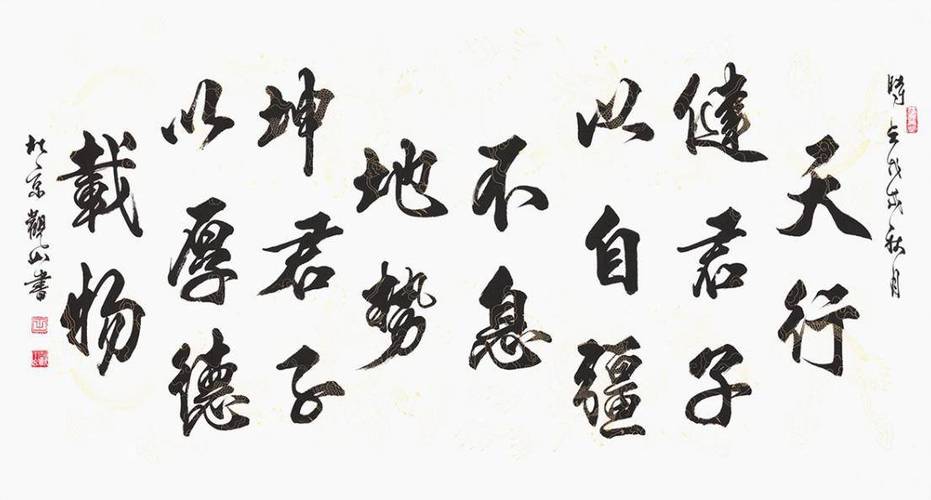 時在戊戌秋月
天行
健君子
以自彊
不息
地勢
坤君子
以厚德
載物
北京觀山書